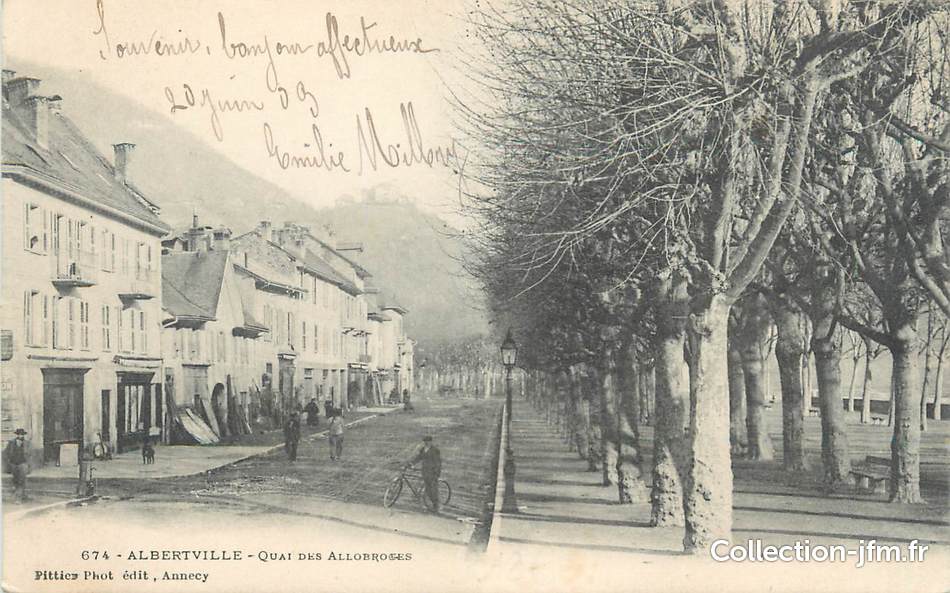 Souvenir, bonjour affectueux
20 juin 03
Emilie
674 - ALBERTVILLE - QUAI DES ALLOBROGES
Pittier Phot édit, Annecy
Collection-jfm.fr